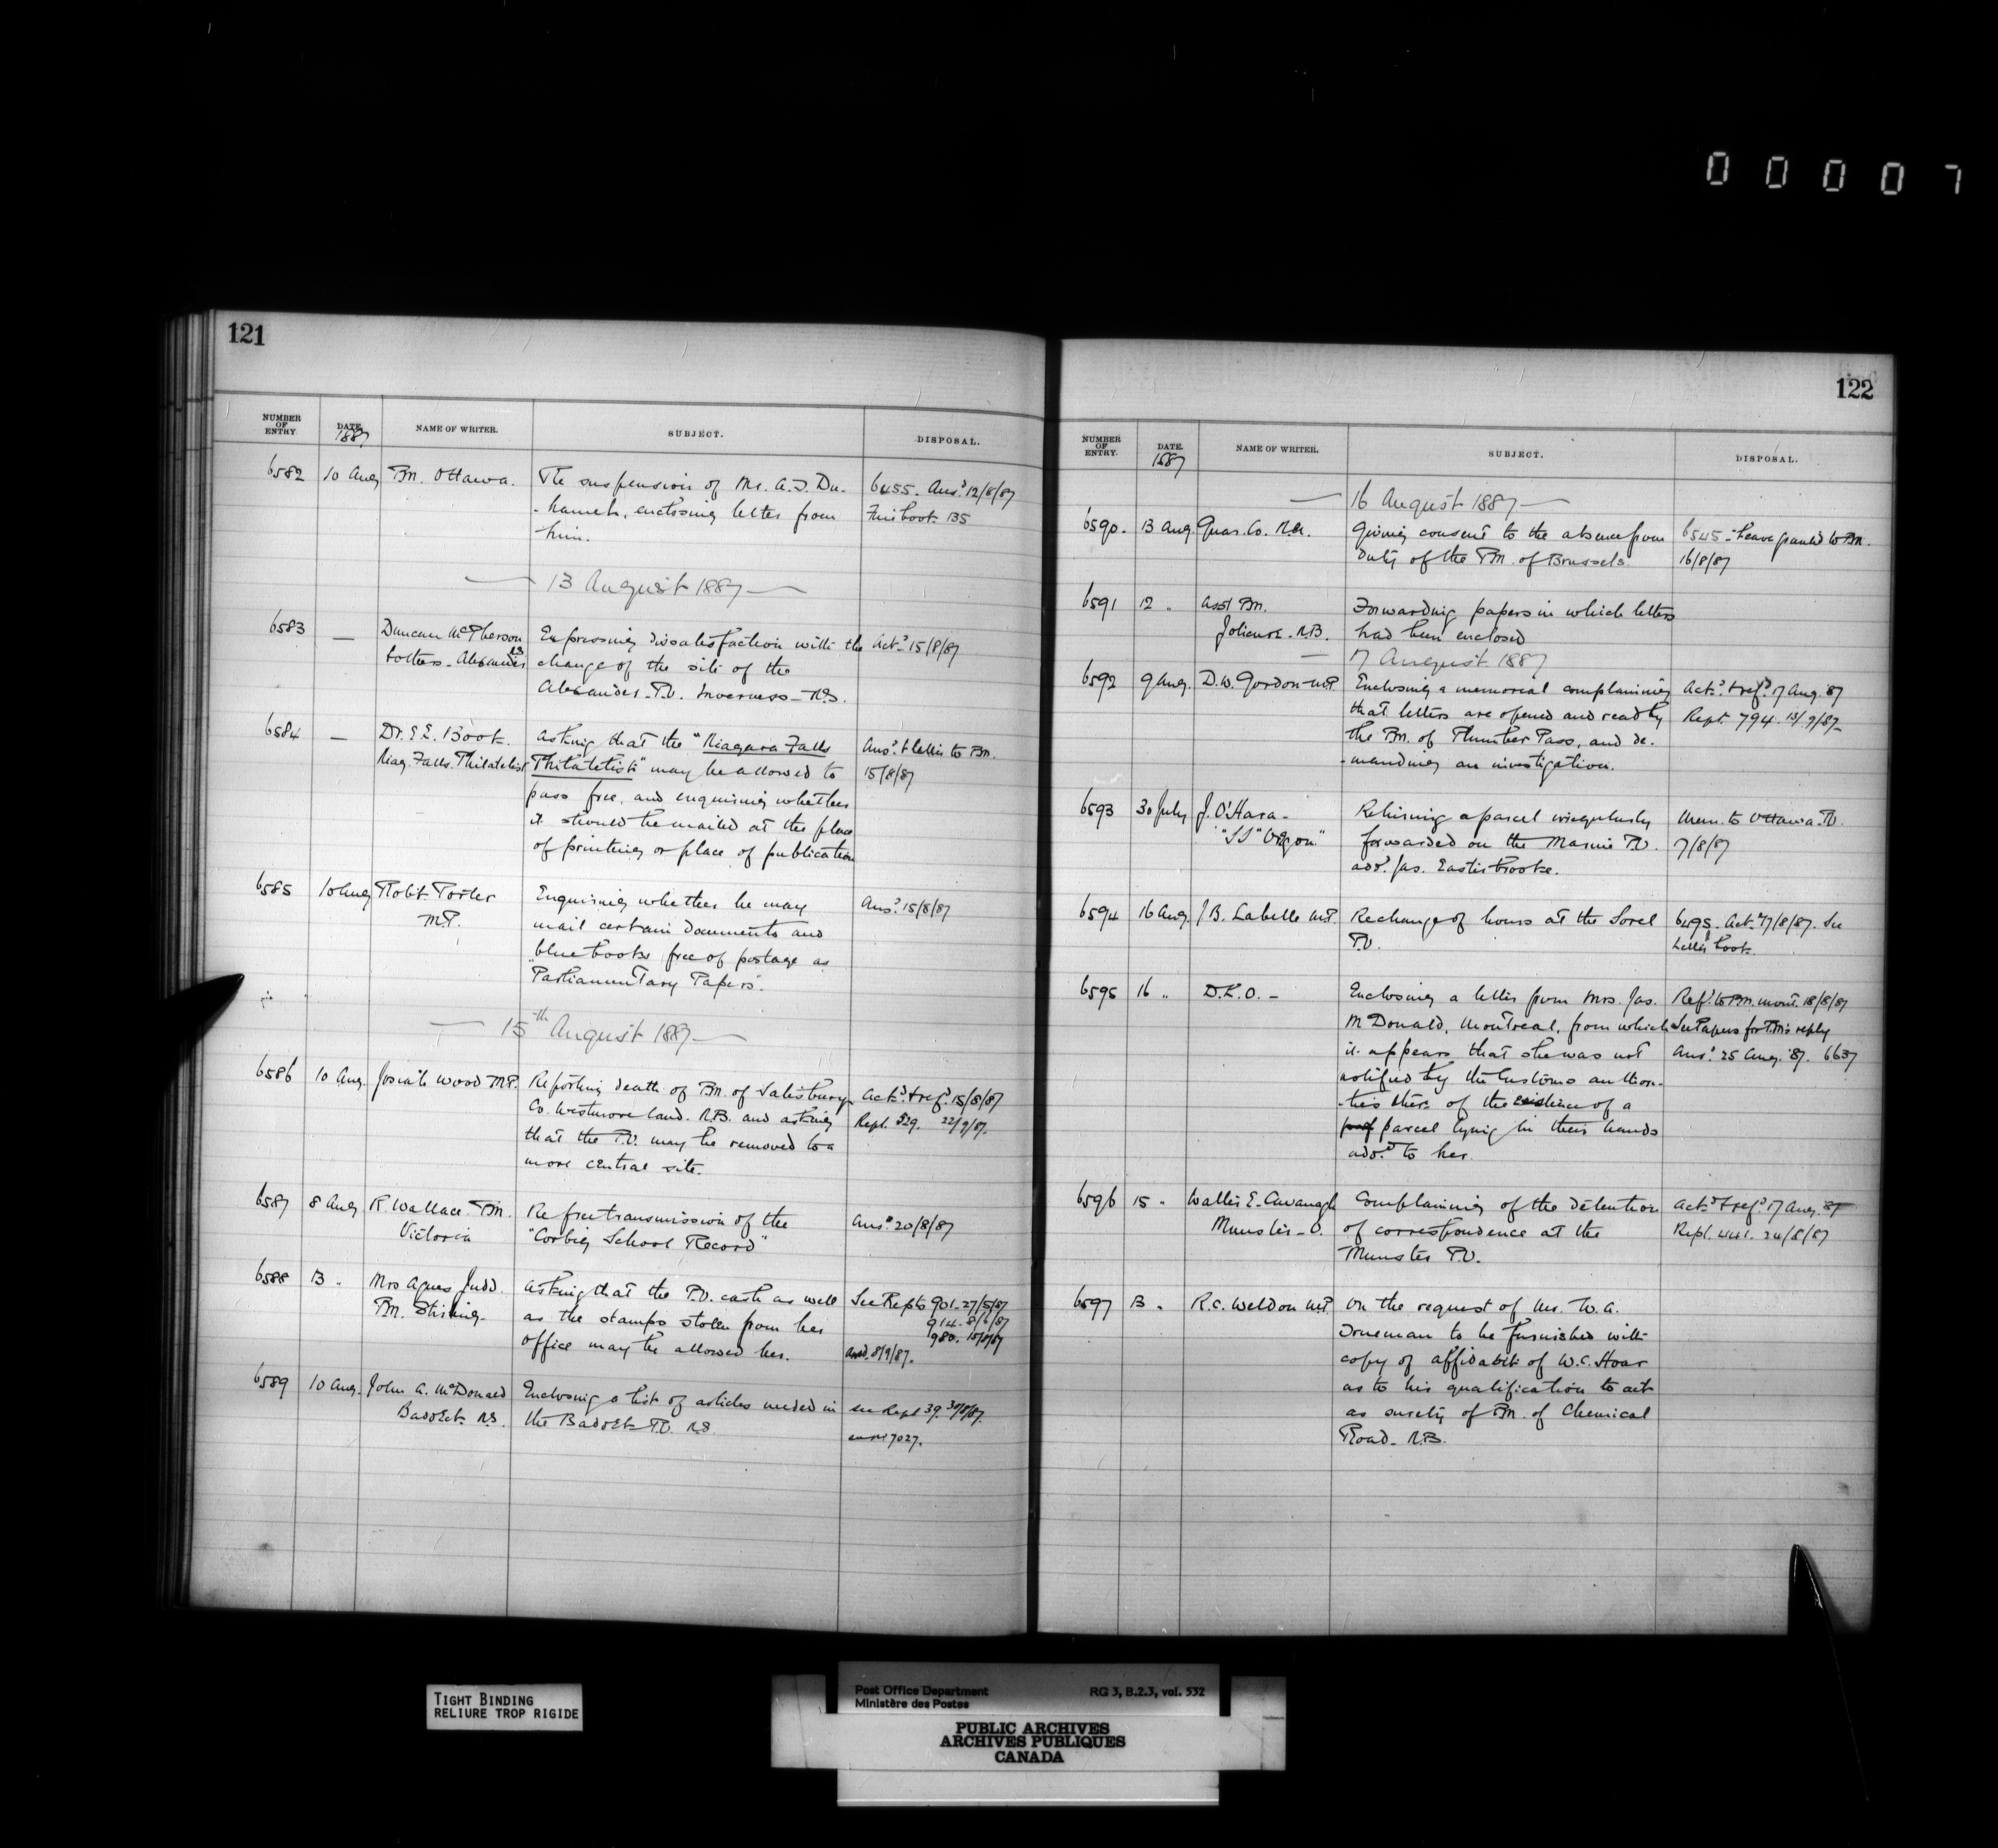 00007
121
NUMBER OF ENTRY
DATE. 1887
NAME OF WRITER.
SUBJECT.
DISPOSAL.
6582 10 Aug PM. Ottawa. The suspension of Mr. A.J. Du- 6455. Ansd 12/8/87
-hamel, enclosing letter from book 135
him.
13 August 1887
6583 — Duncan McPherson Expressing dissatisfaction with the Ackd 15/8/87
& others - Alexander change of the site of the
Alexander P.O. Inverness - N.S.
6584 — Dr. E.E. Book. Asking that the "Niagara Falls Ansd & letter to PM.
Niag. Falls. Philatelist Philatelist" may be allowed to 15/8/87
pass free, and enquiring whether
it should be mailed at the place
of printing or place of publication
6585 10 Aug Robt Porter Enquiring whether he may Ansd 15/8/87
M.P. mail certain documents and
blue books free of postage as
"Parliamentary Papers".
15th August 1887
6586 10 Aug. Josiah Wood M.P. Reporting death of PM. of Salisbury Ackd & refd 15/8/87
Co. Westmoreland. N.B. and asking Rept. 529. 22/9/87.
that the P.O. may be removed to a
more central site.
6587 8 Aug R. Wallace. PM. Re free transmission of the Ansd 20/8/87
Victoria "Corbig School Record"
6588 13 " Mrs Agnes Judd. Asking that the P.O. cash as well See Repts 901-27/5/87
PM. Stirling- as the stamps stolen from her 914-8/6/87
office may be allowed her. 980. 15/8/87
Ansd. 8/9/87.
6589 10 Aug. John A. McDonald Enclosing a list of articles needed in see Rept 39. 30/8/87.
Baddeck N.S. the Baddeck P.O. N.S. 7027.
122
NUMBER OF ENTRY.
DATE. 1887
NAME OF WRITER.
SUBJECT.
DISPOSAL.
16 August 1887
6590. 13 Aug. Guar. Co. N.A. Giving consent to the absence from 6545 - Leave granted to PM.
duty of the PM. of Brussels. 16/8/87
6591 12 " Asst PM. Forwarding papers in which letters
Jolicure - N.B. had been enclosed
17 August 1887
6592 9 Aug. D.W. Gordon - M.P. Enclosing a memorial complaining Ackd & refd 17 Aug. 87
that letters are opened and read by Rept. 794. 13/9/87-
the PM. of Plumber Pass, and de-
-manding an investigation.
6593 30 July J. O'Hara - Returning a parcel irregularly Mem. to Ottawa P.O.
"SS" Oregon" forwarded on the Marine P.O. 17/8/87
add. Jas. Easterbrooke.
6594 16 Aug. J.B. Labelle M.P. Re change of hours at the Sorel 6495. Ackd 17/8/87. See
P.O. Letter book.
6595 16 " D.L.O. - Enclosing a letter from Mrs. Jas. Refd to PM. Mont. 18/8/87
McDonald, Montreal, from which See Papers for P.M's reply
it appears that she was not Ansd. 25 Aug. 87. 6637
notified by the Customs author-
-ties there of the existence of a
parcel lying in their hands
addd to her.
6596 15 " Walter E. Cavanagh Complaining of the detention Ackd & refd 17 Aug. 87
Munster - O. of correspondence at the Rept. 441. 24/8/87
Munster P.O.
6597 13 " R.C. Weldon M.P. On the request of Mr. W.A.
to be furnished with
copy of affidabit of W.C. Hoar
as to his qualification to act
as surety of PM. of Chemical
Road - N.B.
TIGHT BINDING
RELIURE TROP RIGIDE
Post Office Department RG 3, B.2.3, vol. 532
Ministère des Postes
PUBLIC ARCHIVES
ARCHIVES PUBLIQUES
CANADA